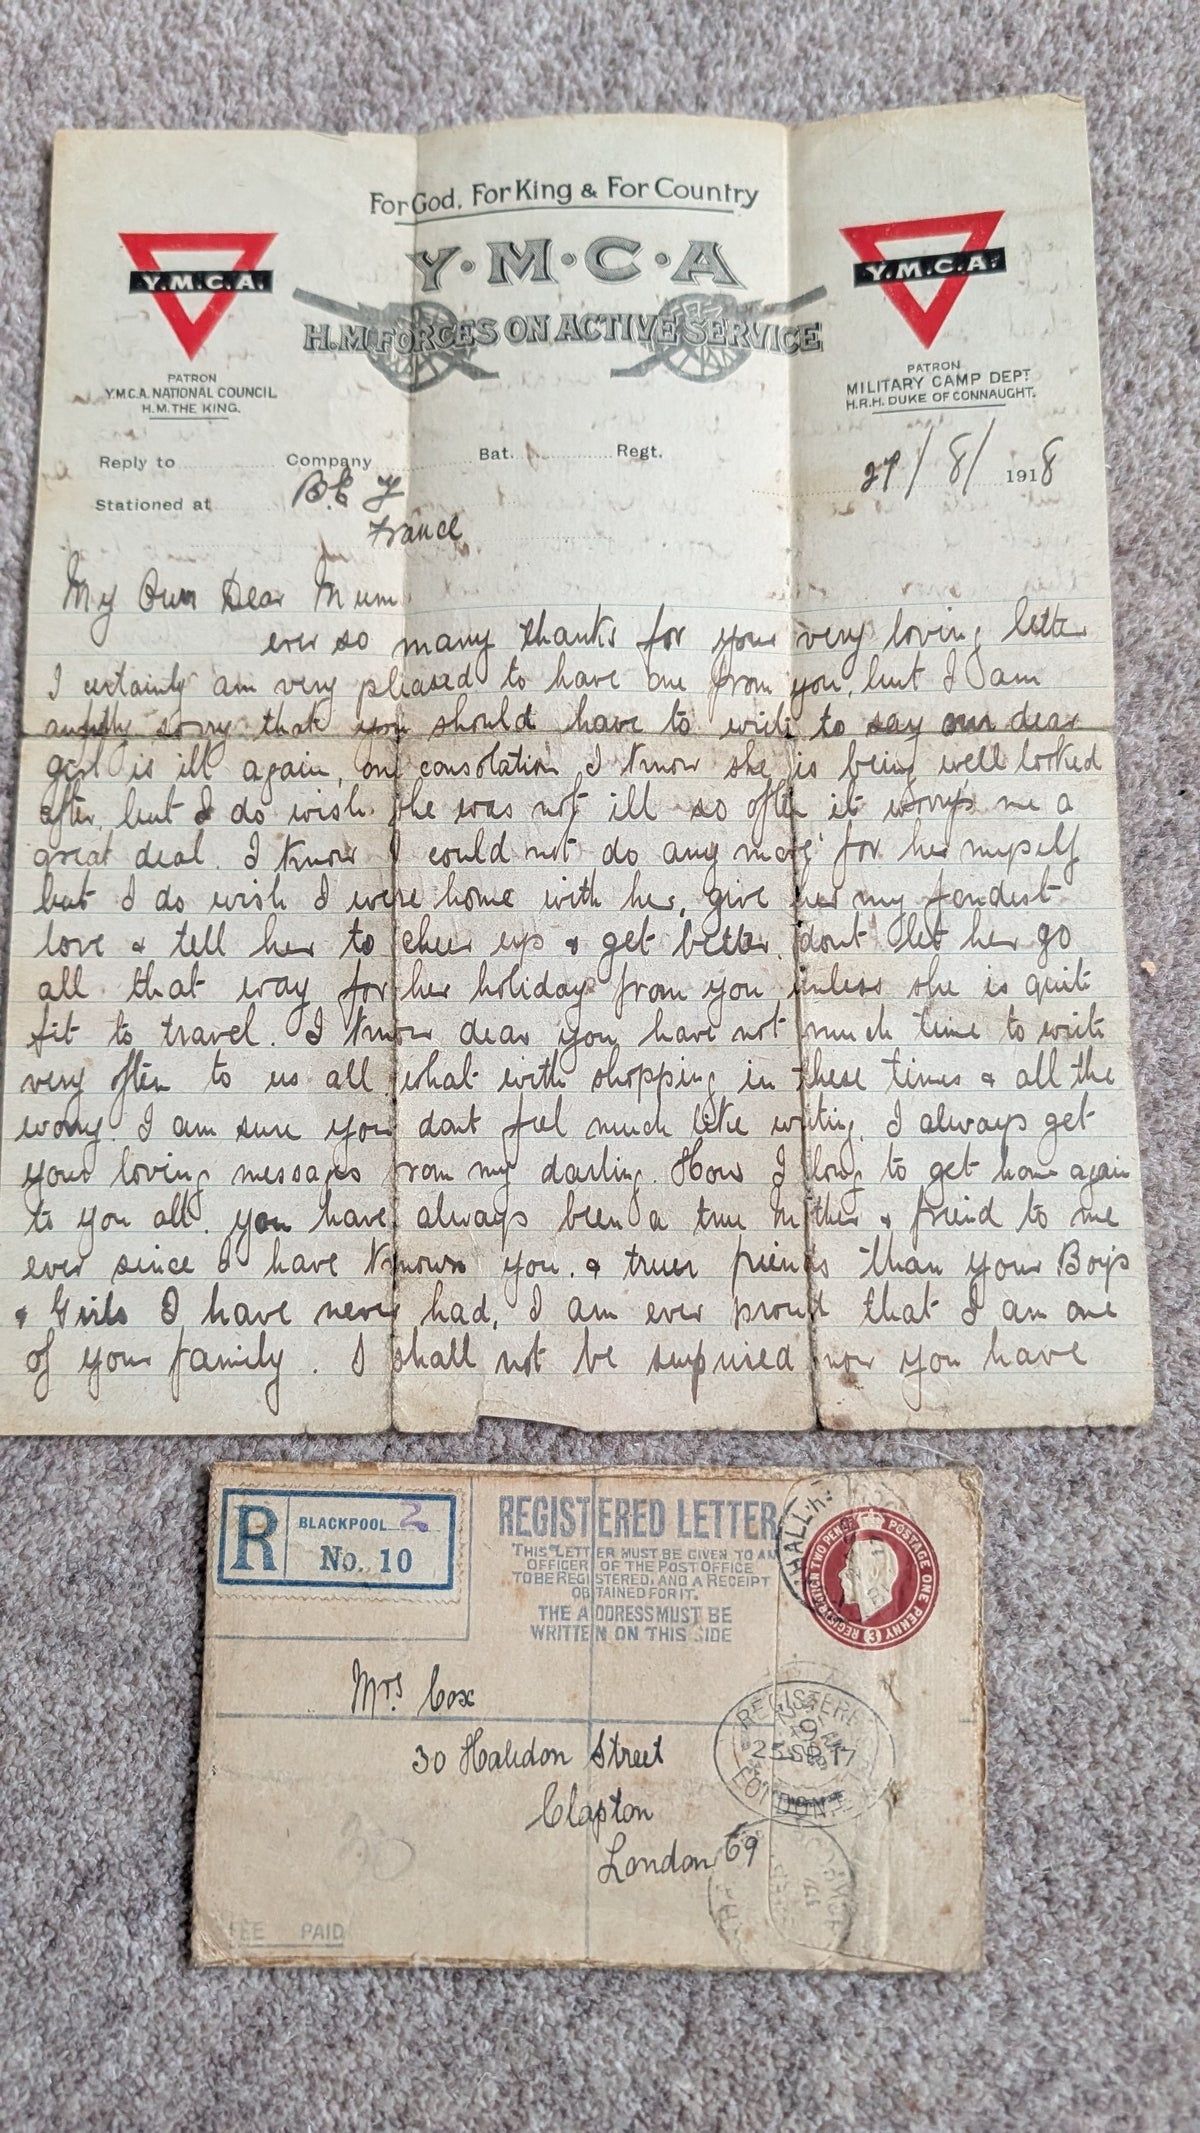 For God, For King & For Country
Y·M·C·A
H.M FORCES ON ACTIVE SERVICE
Y.M.C.A.
PATRON
Y.M.C.A. NATIONAL COUNCIL
H.M. THE KING.
Y.M.C.A.
PATRON
MILITARY CAMP DEPT
H.R.H. DUKE OF CONNAUGHT.
Reply to Company Bat. Regt.
29/8/1918
Stationed at B.E.F
France
My Own Dear Mum
ever so many thanks for your very loving letter
I certainly am very pleased to have one from you, but I am
awfully sorry that you should have to write to say our dear
girl is ill again, one consolation I know she is being well looked
after, but I do wish she was not ill so often it worrys me a
great deal. I know I could not do any more for her myself
but I do wish I were home with her, give her my fondest
love & tell her to cheer up & get better. dont let her go
all that way for her holiday from you unless she is quite
fit to travel. I know dear you have not much time to write
very often to us all what with shopping in these times & all the
worry. I am sure you dont feel much like writing. I always get
your loving messages from my darling. How I long to get home again
to you all. you have always been a true mother & friend to me
ever since I have known you. & truer friends than your Boys
& Girls I have never had, I am ever proud that I am one
of your family. I shall not be surprised now you have
R BLACKPOOL 2
No. 10
REGISTERED LETTER
THIS LETTER MUST BE GIVEN TO AN
OFFICER OF THE POST OFFICE
TO BE REGISTERED, AND A RECEIPT
OBTAINED FOR IT.
THE ADDRESS MUST BE
WRITTEN ON THIS SIDE
POSTAGE ONE PENNY
REGISTRATION TWO PENCE
Mrs. Cox
30 Halidon Street
Clapton
London E9
REGISTERED
25 SP 17
LONDON
FEE PAID